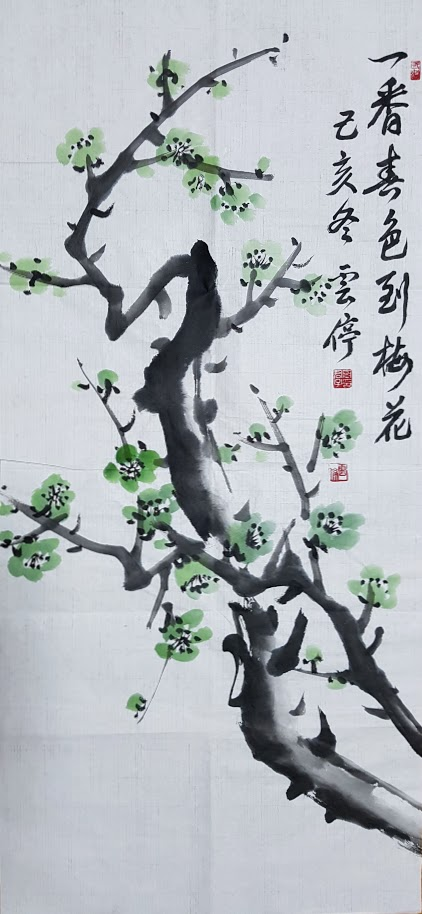 一番春色到梅花
己亥冬 雲停